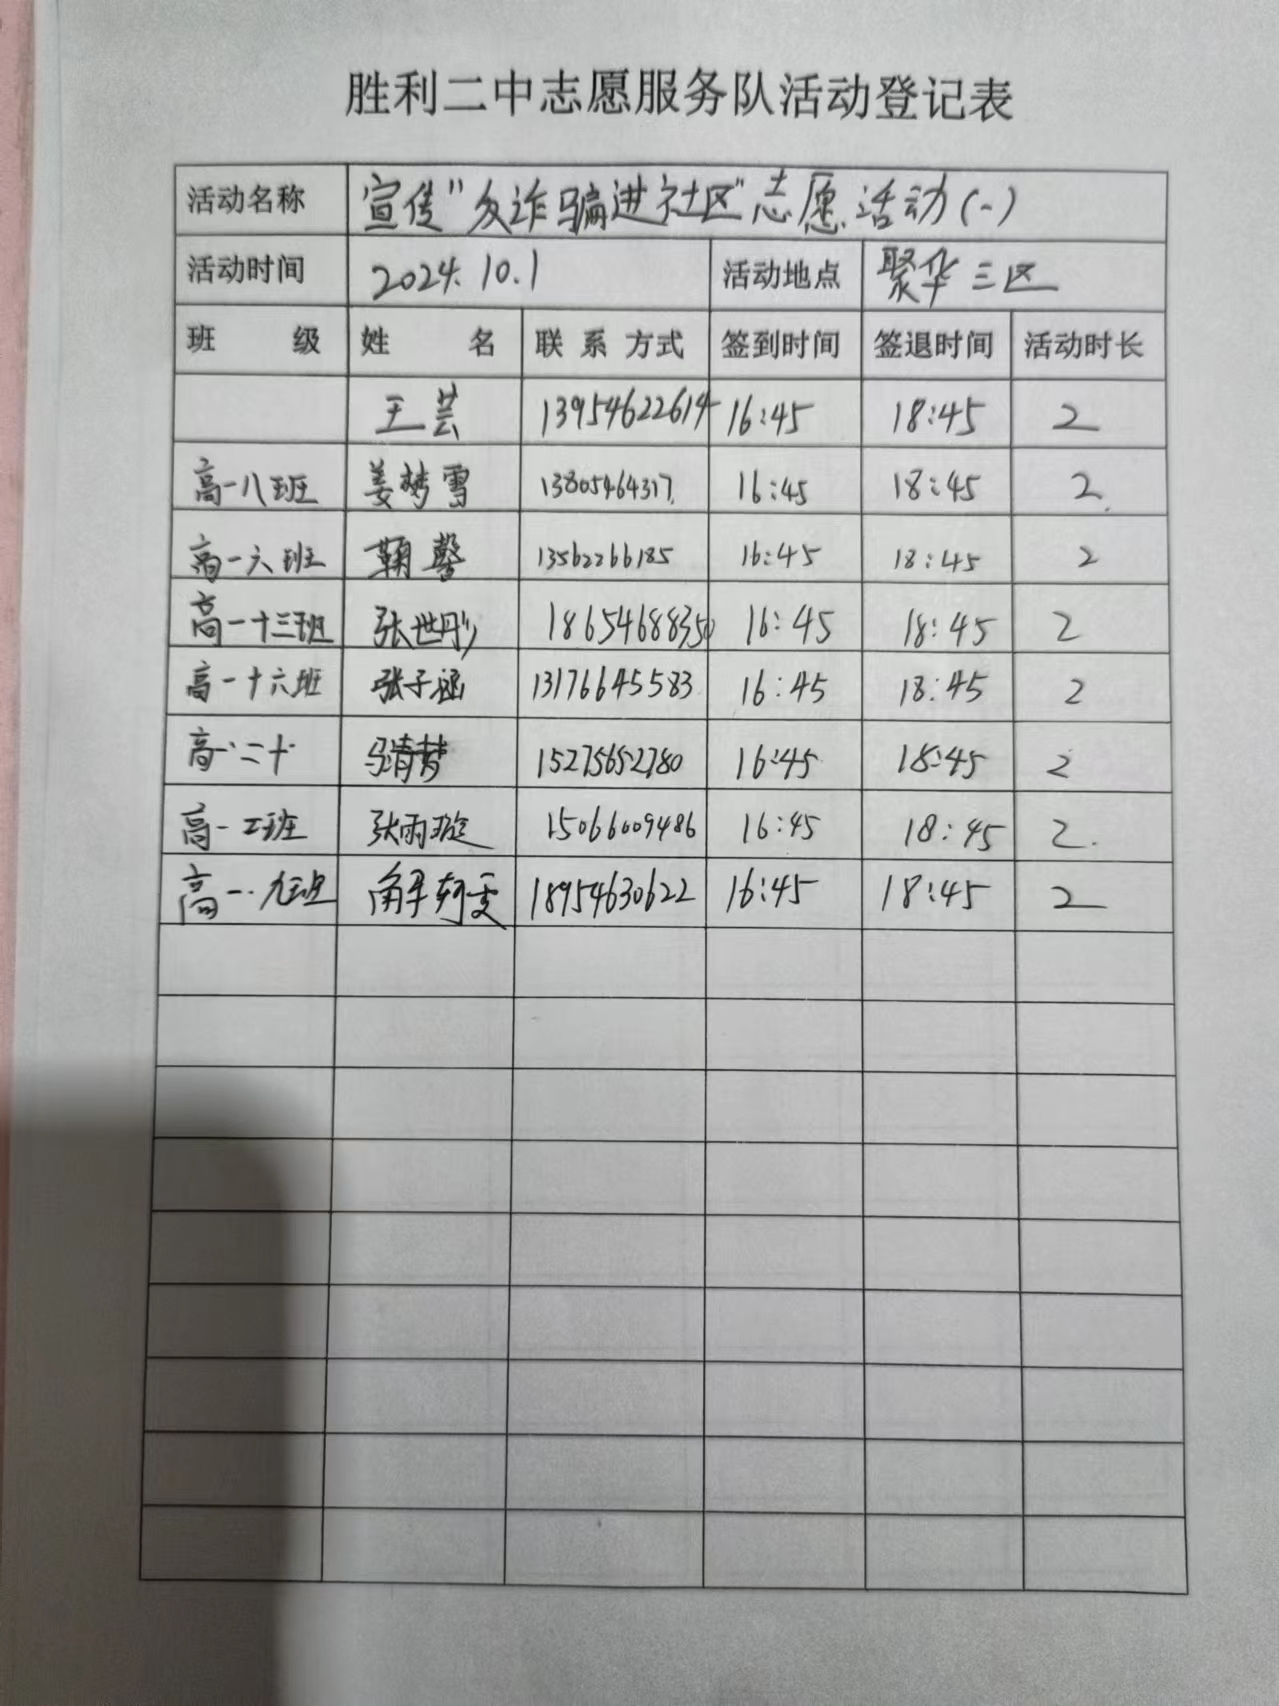 胜利二中志愿服务队活动登记表
活动名称 宣传"反诈骗进社区"志愿活动(一)
活动时间 2024.10.1 活动地点 聚华三区
班 级 姓 名 联系方式 签到时间 签退时间 活动时长
王芸 13954622614 16:45 18:45 2
高一八班 姜梦雪 13805464317 16:45 18:45 2
高一六班 鞠馨 13562266185 16:45 18:45 2
高一十三班 张世彤 18654688350 16:45 18:45 2
高一十六班 张子涵 13176645583 16:45 18:45 2
高一二十 马清梦 15275652780 16:45 18:45 2
高一工班 张雨璇 15066009486 16:45 18:45 2
高一九班 解轲雯 18954630622 16:45 18:45 2